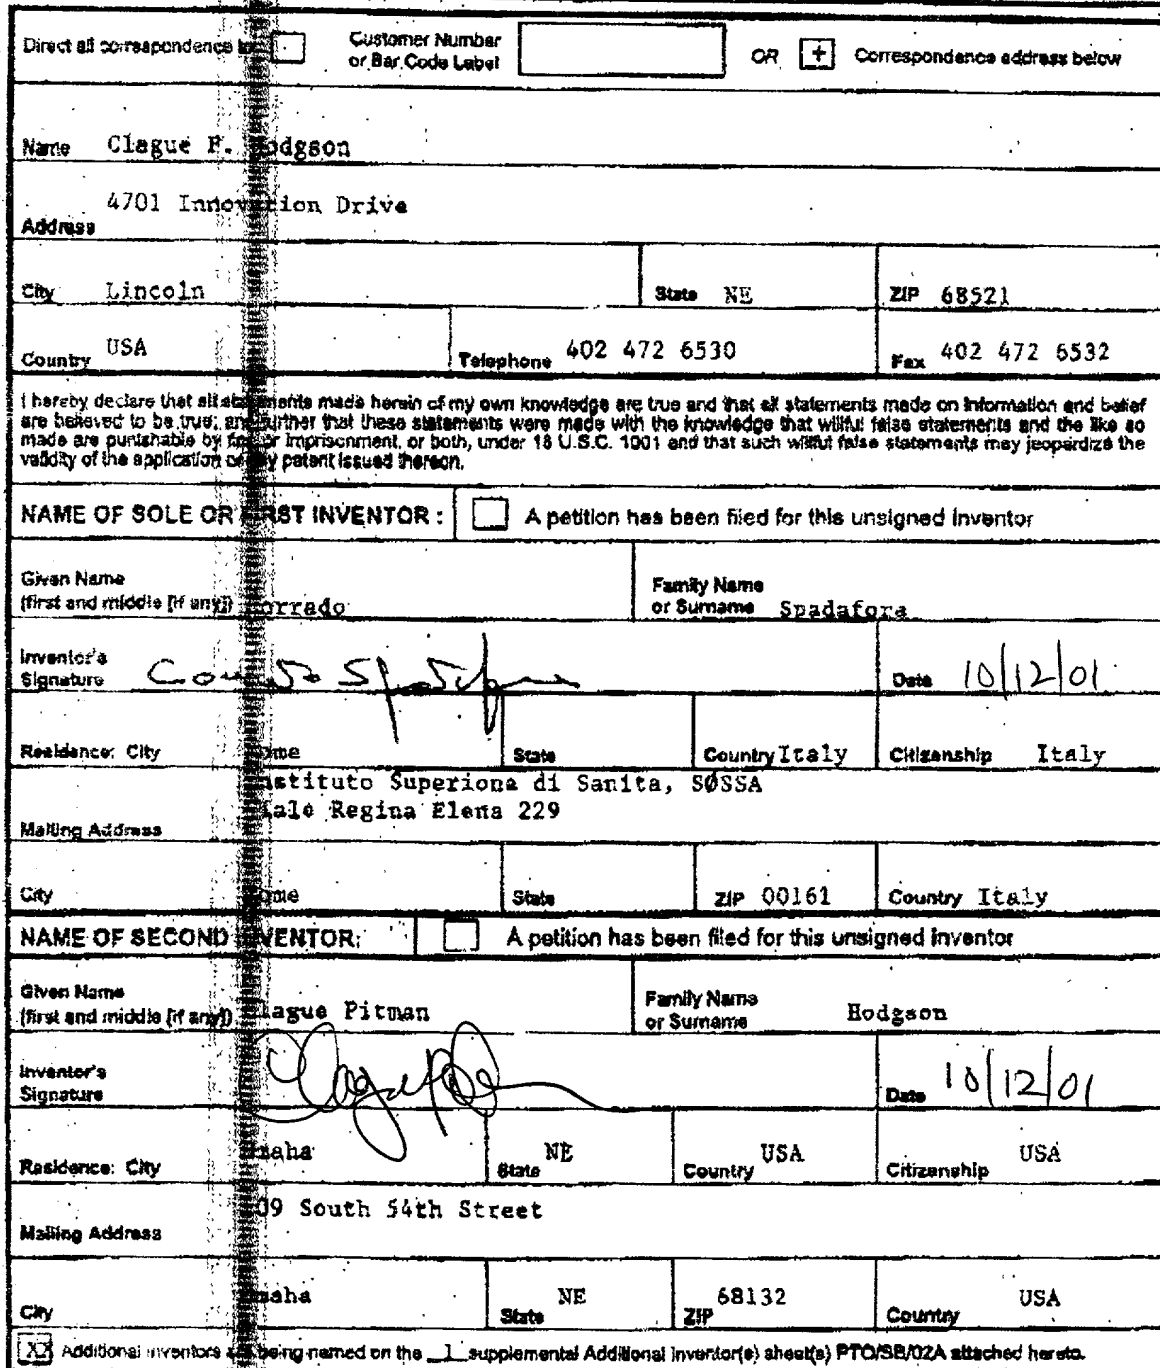 Direct all correspondence to: Customer Number or Bar Code Label OR + Correspondence address below
Name Clague P. Hodgson
4701 Innovation Drive
Address
City Lincoln State NE ZIP 68521
Country USA Telephone 402 472 6530 Fax 402 472 6532
I hereby declare that all statements made herein of my own knowledge are true and that all statements made on information and belief
are believed to be true; and further that these statements were made with the knowledge that willful false statements and the like so
made are punishable by fine or imprisonment, or both, under 18 U.S.C. 1001 and that such willful false statements may jeopardize the
validity of the application or any patent issued thereon.
NAME OF SOLE OR FIRST INVENTOR : A petition has been filed for this unsigned inventor
Given Name
(first and middle [if any]) Corrado
Family Name
or Surname Spadafora
Inventor's
Signature Corrado Spadafora Date 10/12/01
Residence: City Rome State Country Italy Citizenship Italy
Instituto Superiona di Sanita, SØSSA
Viale Regina Elena 229
Mailing Address
City Rome State ZIP 00161 Country Italy
NAME OF SECOND INVENTOR: A petition has been filed for this unsigned inventor
Given Name
(first and middle [if any]) Clague Pitman
Family Name
or Surname Hodgson
Inventor's
Signature Date 10/12/01
Residence: City Omaha State NE Country USA Citizenship USA
09 South 54th Street
Mailing Address
City Omaha State NE ZIP 68132 Country USA
XX Additional inventors are being named on the 1 supplemental Additional Inventor(s) sheet(s) PTO/SB/02A attached hereto.